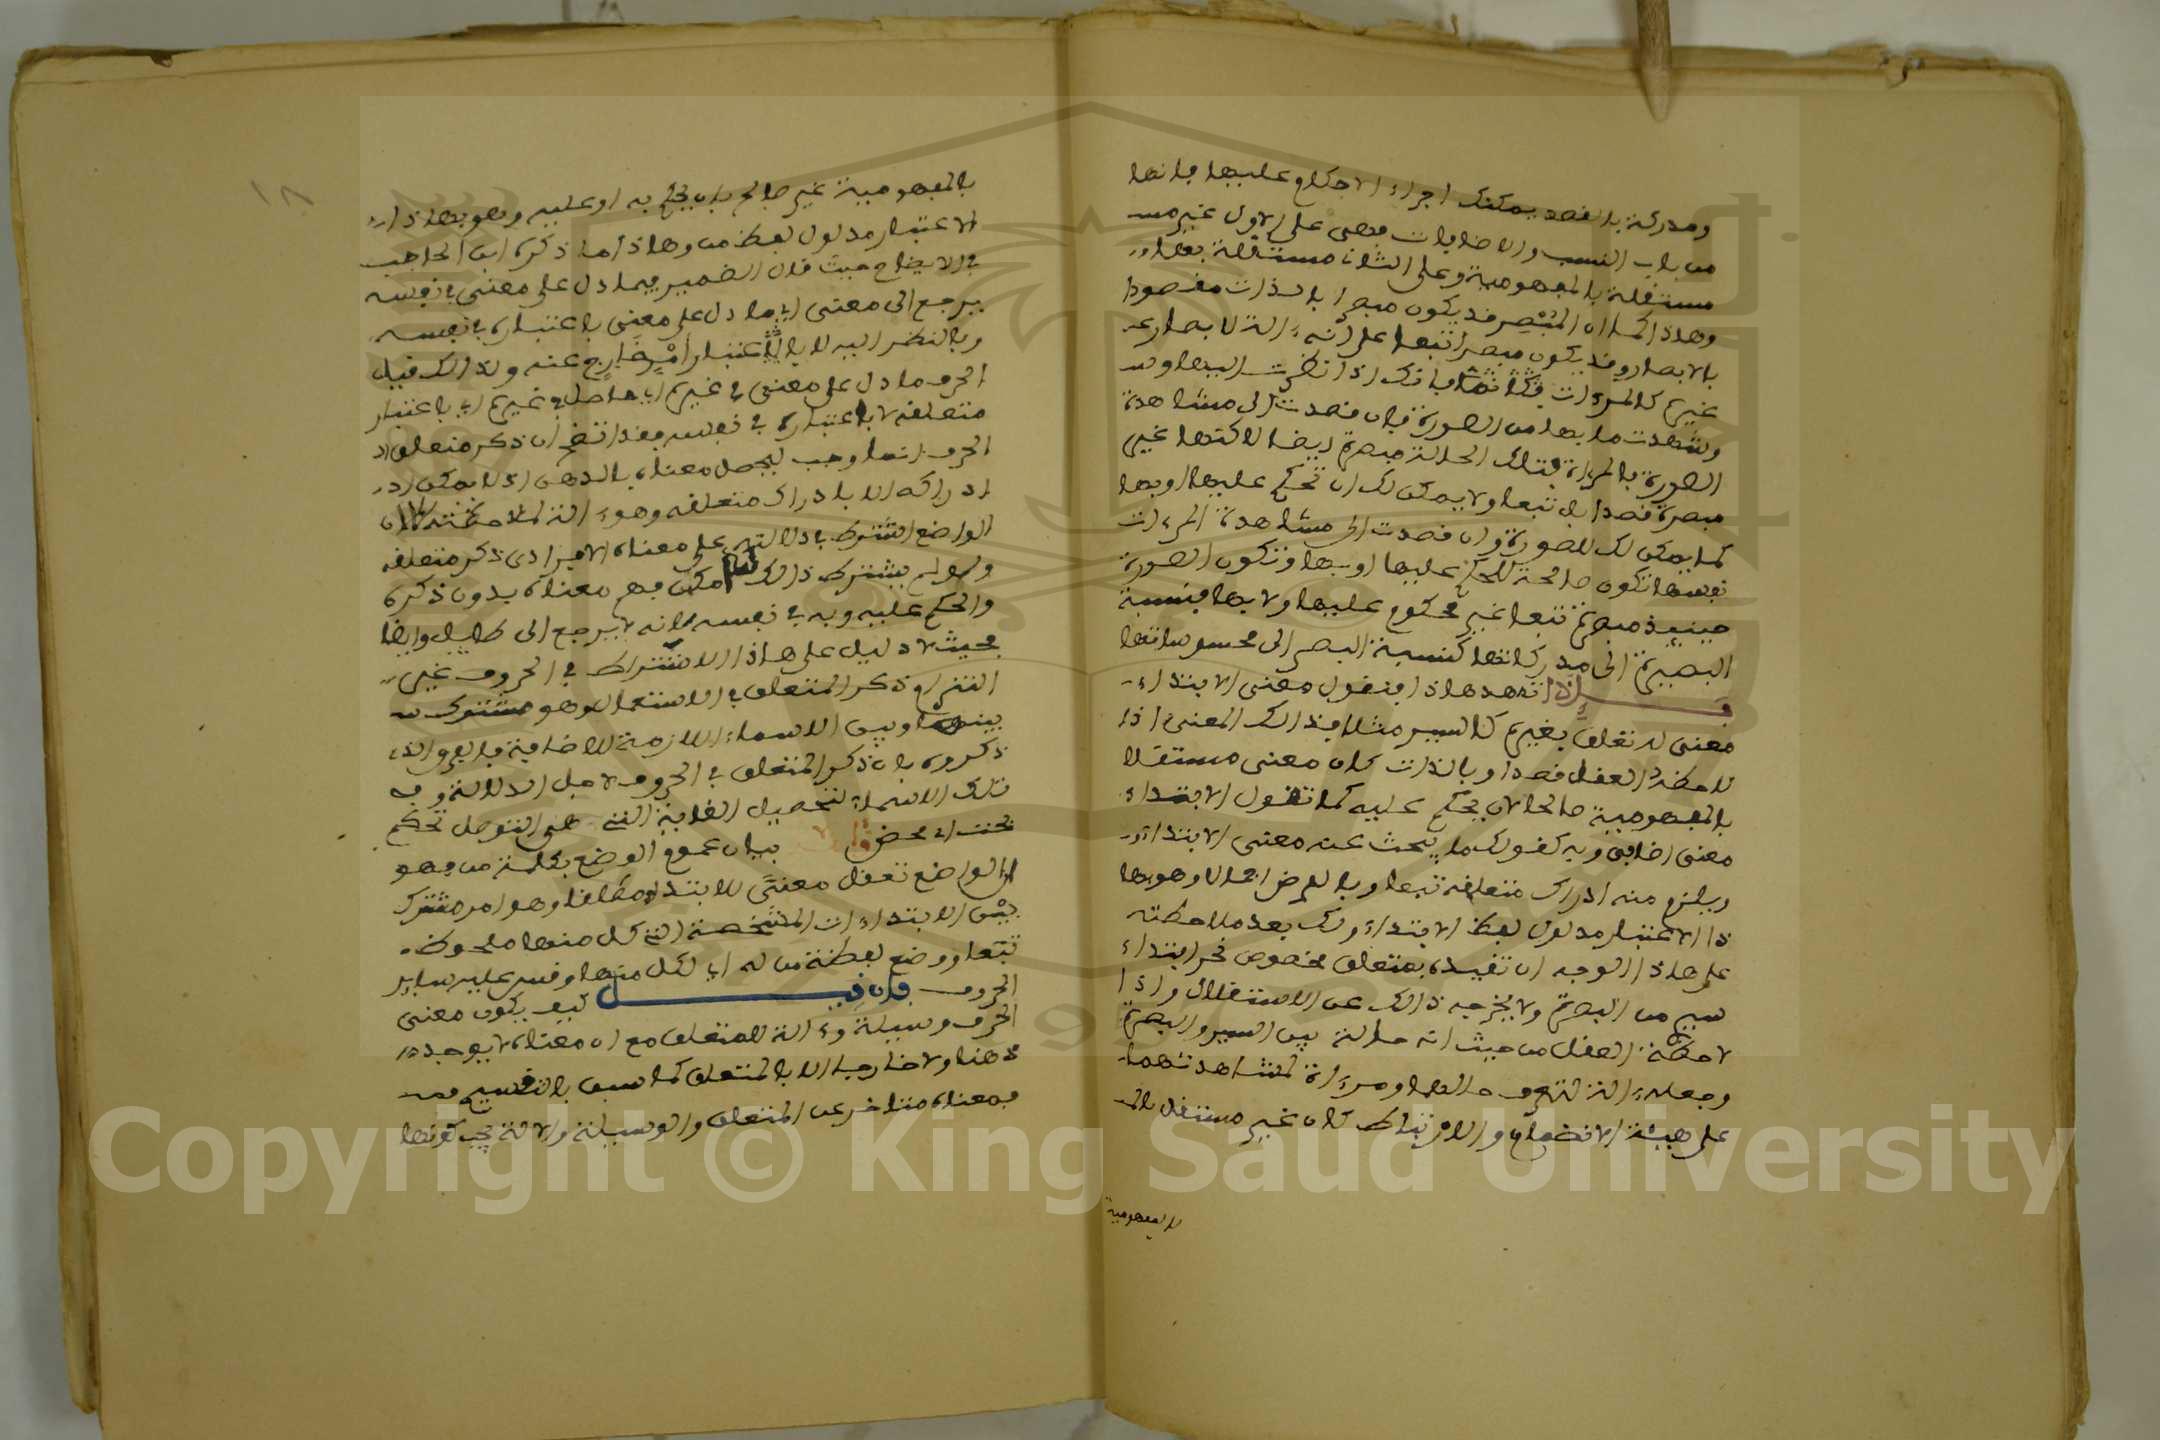 ومدركة بالقصد يمكنك اجراء الاحكام عليها فانها
من باب النسب والاضافات فهي على الاول غير مسـ
مستقلة بالمفهومية وعلى الثاني مستقلة بها
وهذا كما ان المبصر قد يكون مبصرا بالذات مقصودا
بالابصار وقد يكون مبصرا تبعا على انه ءالة لابصار
غيره كالمرءات فانك اذا نظرت اليها و
وشهدت ما بها من الصورة فان قصدت الى مشاهدة
الصورة بالمرءاة فتلك الحالة مبصرة ايضا لاكنها غير
مبصرة قصدا بل تبعا ولا يمكن لك ان تحكم عليها او بها
كما يمكن لك للصورة وان قصدت الى مشاهدة المرءات
نفسها تكون صالحة للحكم عليها او بها وتكون الصورة
حينيذ مبصرة تبعا غير محكوم عليها ولا بها فنسبة
البصيرة الى مدركاتها كنسبة البصر الى محسوساتها
فــإذا تمهد هاذا فنقول معنى الابتداء
معنى له تعلق بغيره كالسير مثلا فذالك المعنى اذا
لاحظه العقل قصدا وبالذات كان معنى مستقلا
بالمفهومية صالحا لان يحكم عليه كما تقول الابتداء
معنى اضافي وبه كقولك ما يبحث عنه معنى الابتداء
ويلزم منه ادراك متعلقه تبعا وبالعرض اجمالا وهو بها
ذا الاعتبار مدلول لفظ الابتداء ولك بعد ملاحظته
على هاذا الوجه ان تقيده بمتعلق مخصوص نحو ابتداء
سير من البصرة ولا يخرجه ذالك عن الاستقلال واذا
لاحظه العقل من حيث انه حالة بين السير والبصرة
وجعله ءالة لتعرف حالهما ومرءاة لمشاهدتهما
على هيئة الانضمام والارتباط كان غير مستقل بالمـ
بالمفهومية
١٨
بالمفهومية غير صالح بان يحكم به او عليه وهو بهاذا
الاعتبار مدلول لفظ من وهاذا ما ذكره ابن الحاجب
في الايضاح حيث قال الضمير فيما دل على معنى في نفسه
يرجع الى معنى اي ما دل على معنى باعتباره في نفسه
وبالنظر اليه لا باعتبار امر خارج عنه ولذالك قيل
الحرف ما دل على معنى في غيره اي حاصل في غيره اي باعتبار
متعلقه لا باعتباره في نفسه فقد اتضح ان ذكر متعلق
الحرف انما وجب ليحصل معناه بالذهن اذ لا يمكن
ادراكه الا بادراك متعلقه وهو ءالة لملاحظته لا ان
الواضع اشترط في دلالته على معناه الافرادي ذكر متعلقه
ولو لم يشترط ذالك لامكن فهم معناه بدون ذكره
والحكم عليه وبه في نفسه لانه لا يرجع الى طايل وايضا
بحيث لا دليل على هاذا الاشتراط في الحروف غير
التزام ذكر المتعلق في الاستعمال وهو مشترك
بينها وبين الاسماء اللازمة للاضافة فالفرق الذي
ذكروه بان ذكر المتعلق في الحروف لاجل الدلالة وفي
تلك الاسماء لتحصيل الغاية التي هي التوصل تحكم
بحت اي محض بيان عموم الوضع بكلمة من فهو
ان الواضع تعقل معنى للابتداء مطلقا وهو امر مشترك
بين الابتداءات المشخصة التي كل منها ملحوظ
تبعا ووضع لفظة من له اي لكل منها وقس عليه ساير
الحروف فإن قيـــل كيف يكون معنى
الحرف وسيلة وءالة للمتعلق مع ان معناه لا يوجد
ذهنا ولا خارجا الا بالمتعلق كما سبق بالتقسيم
فمعناه متاخر عن المتعلق والوسيلة والالة يجب كونها
Copyright © King Saud University